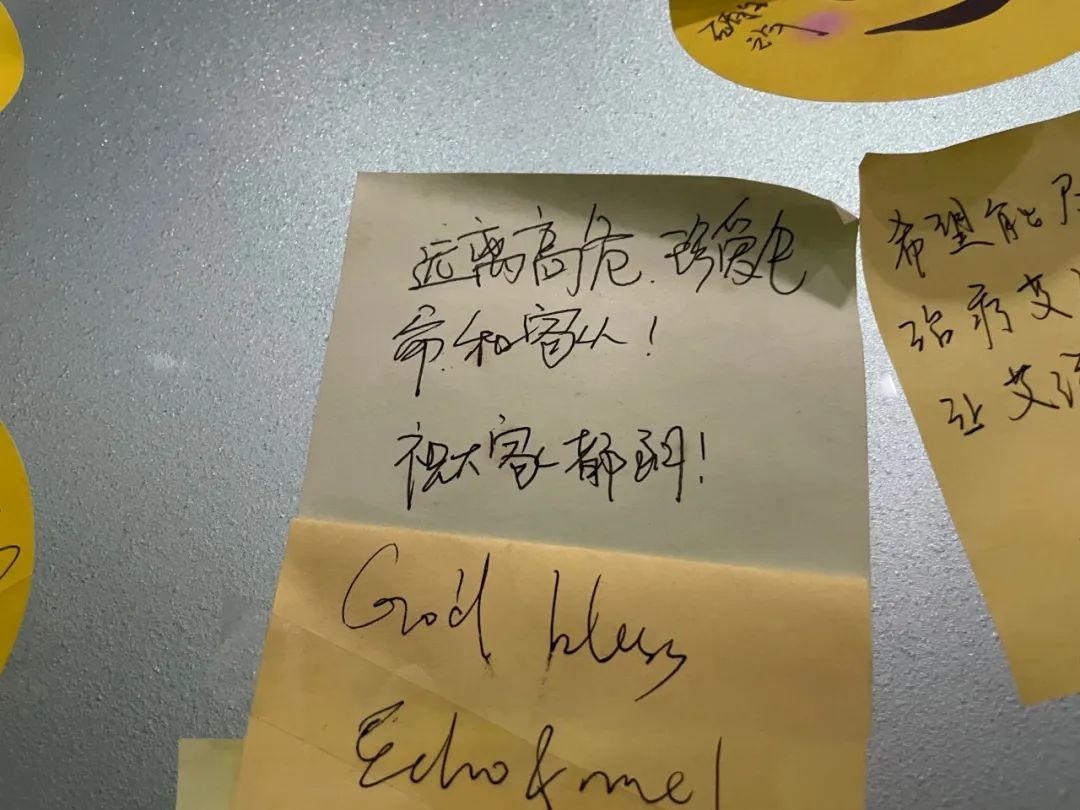 远离高危.珍爱生
命和家人!
祝大家都阴!
God bless
Echo & me!
希望能
治疗艾
让艾